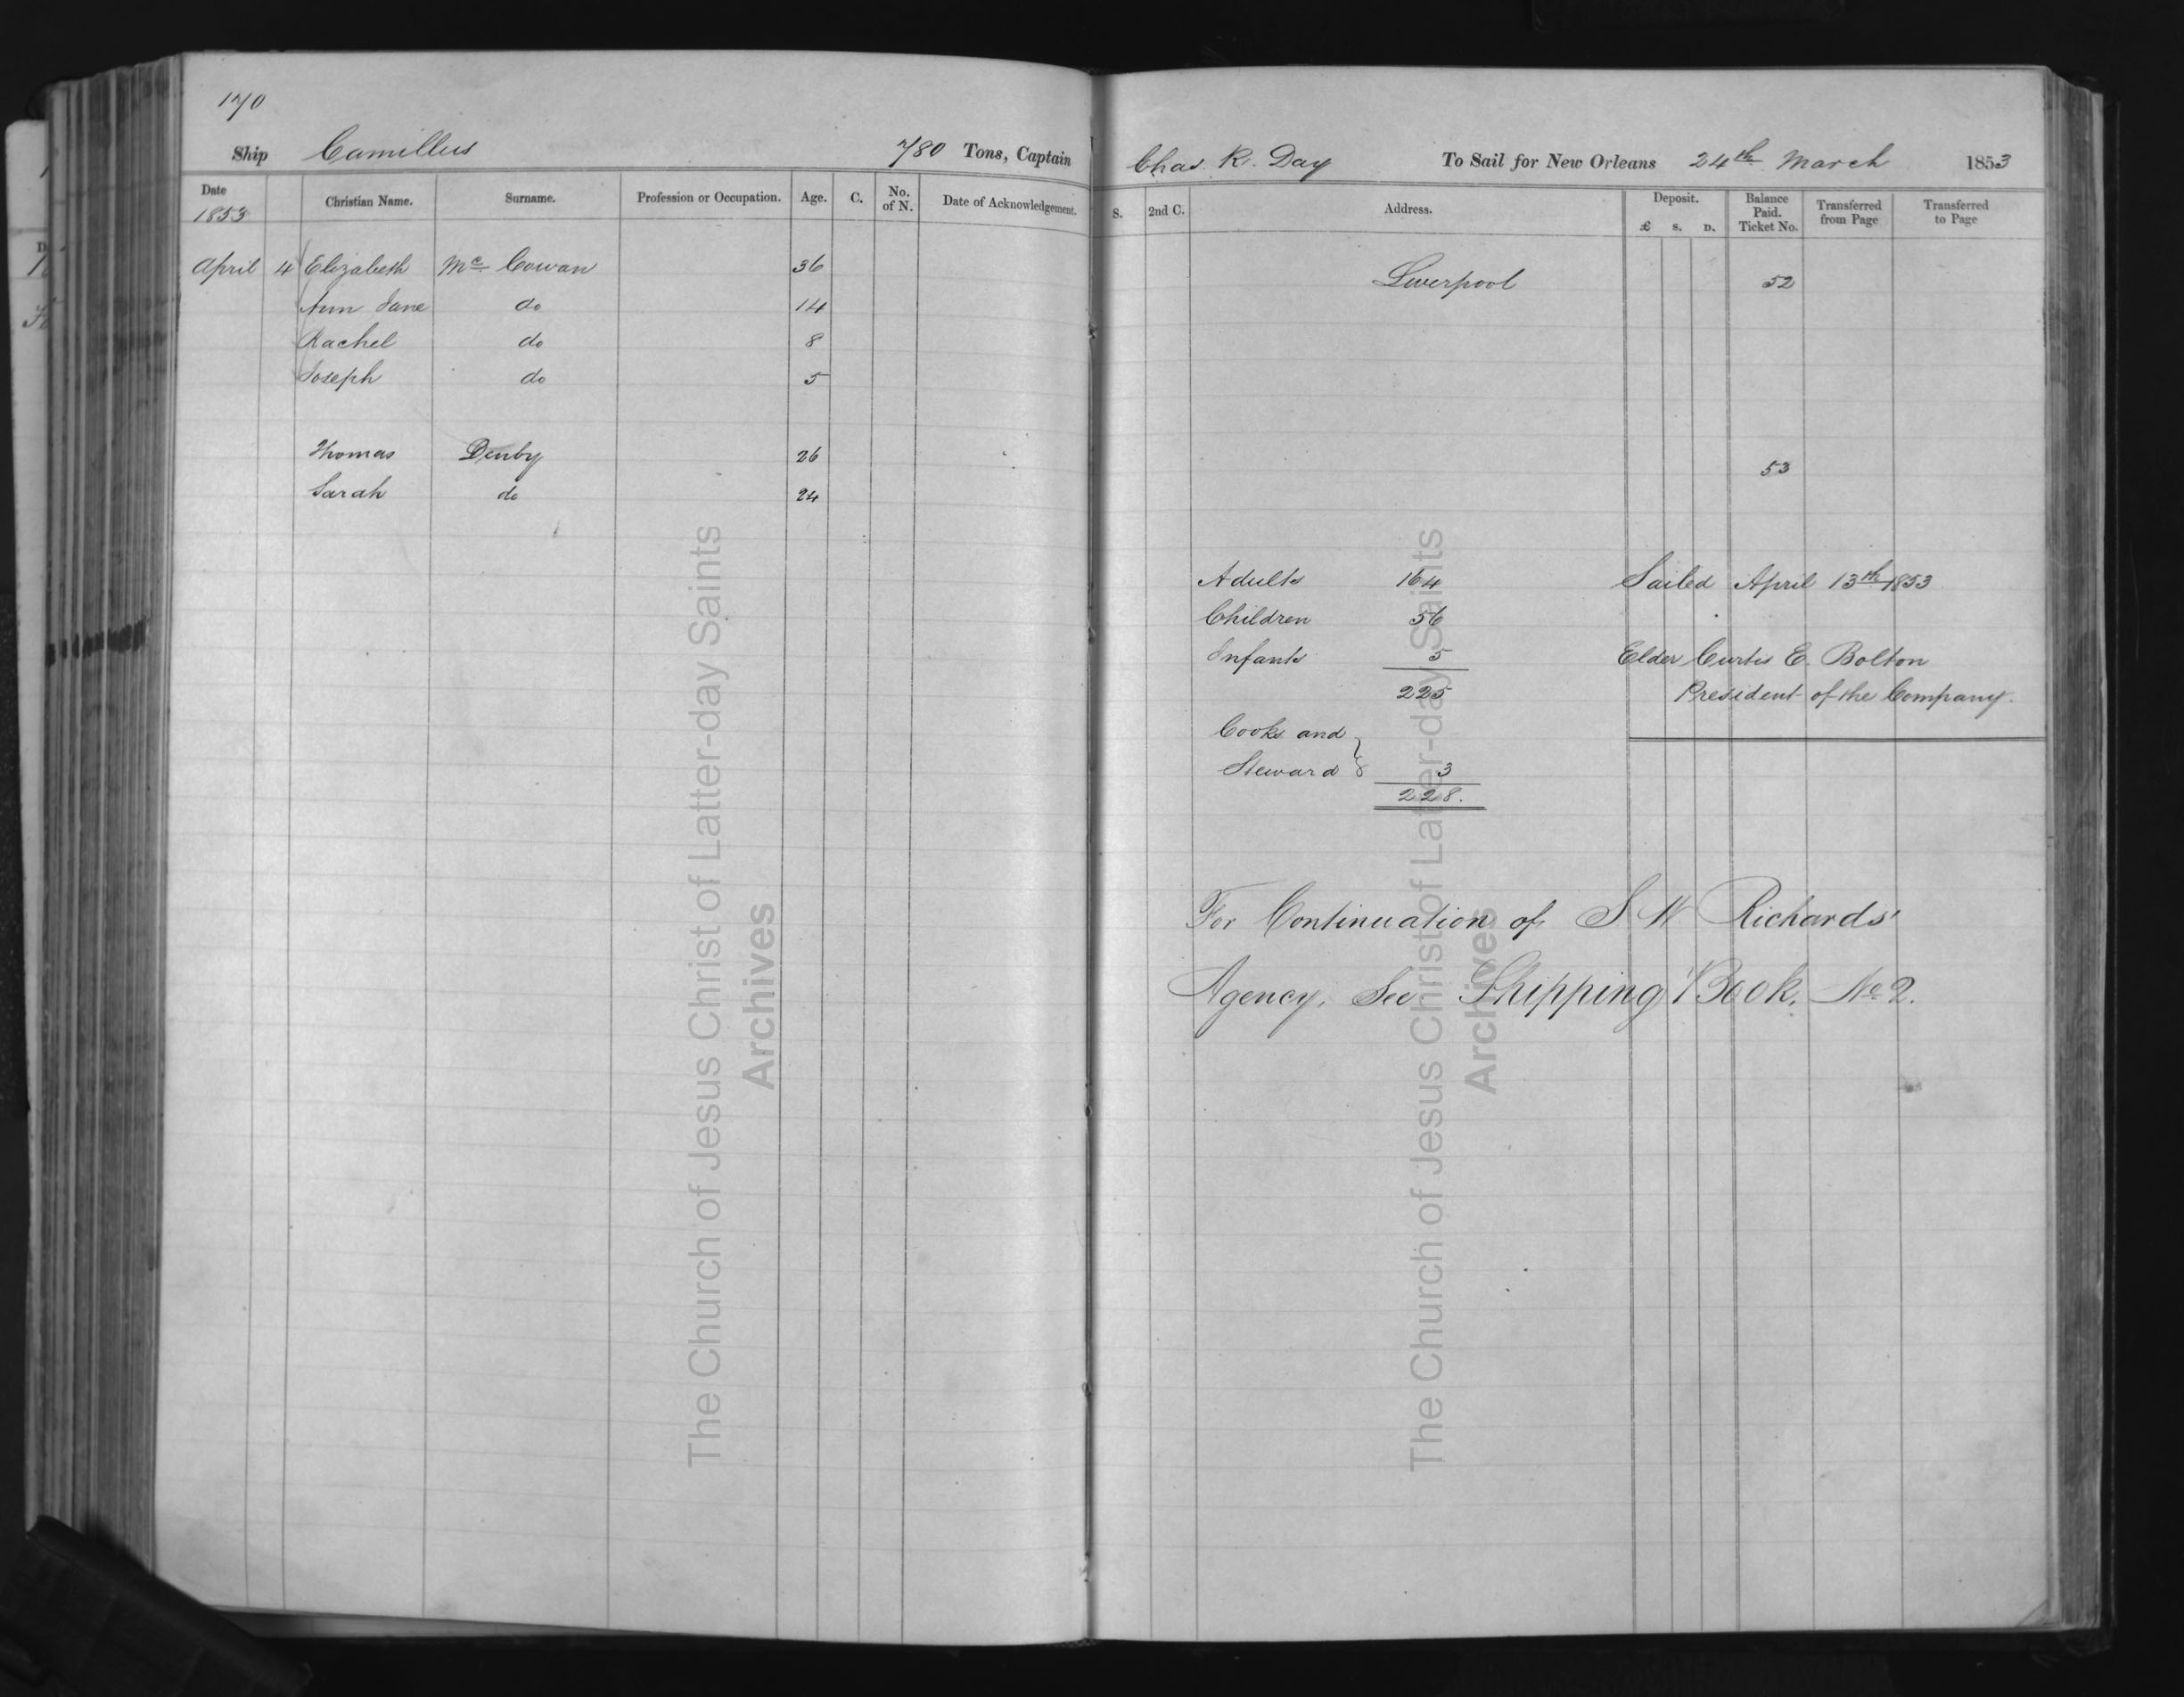 170
Ship Camillus 780 Tons, Captain Chas. R. Day To Sail for New Orleans 24th March 1853
Date 1853 Christian Name. Surname. Profession or Occupation. Age. C. No. of N. Date of Acknowledgement. S. 2nd C. Address. Deposit. £ s. D. Balance Paid. Ticket No. Transferred from Page Transferred to Page
April 4 Elizabeth Mc Cowan 36 Liverpool 52
Ann Jane do 14
Rachel do 8
Joseph do 5
Thomas Denby 26 53
Sarah do 24
Adults 164 Sailed April 13th 1853
Children 56
Infants 5 Elder Curtis E. Bolton
225 President of the Company.
Cooks and
Steward } 3
228.
For Continuation of S W Richards'
Agency, See Shipping Book, No 2.
The Church of Jesus Christ of Latter-day Saints
Archives
The Church of Jesus Christ of Latter-day Saints
Archives